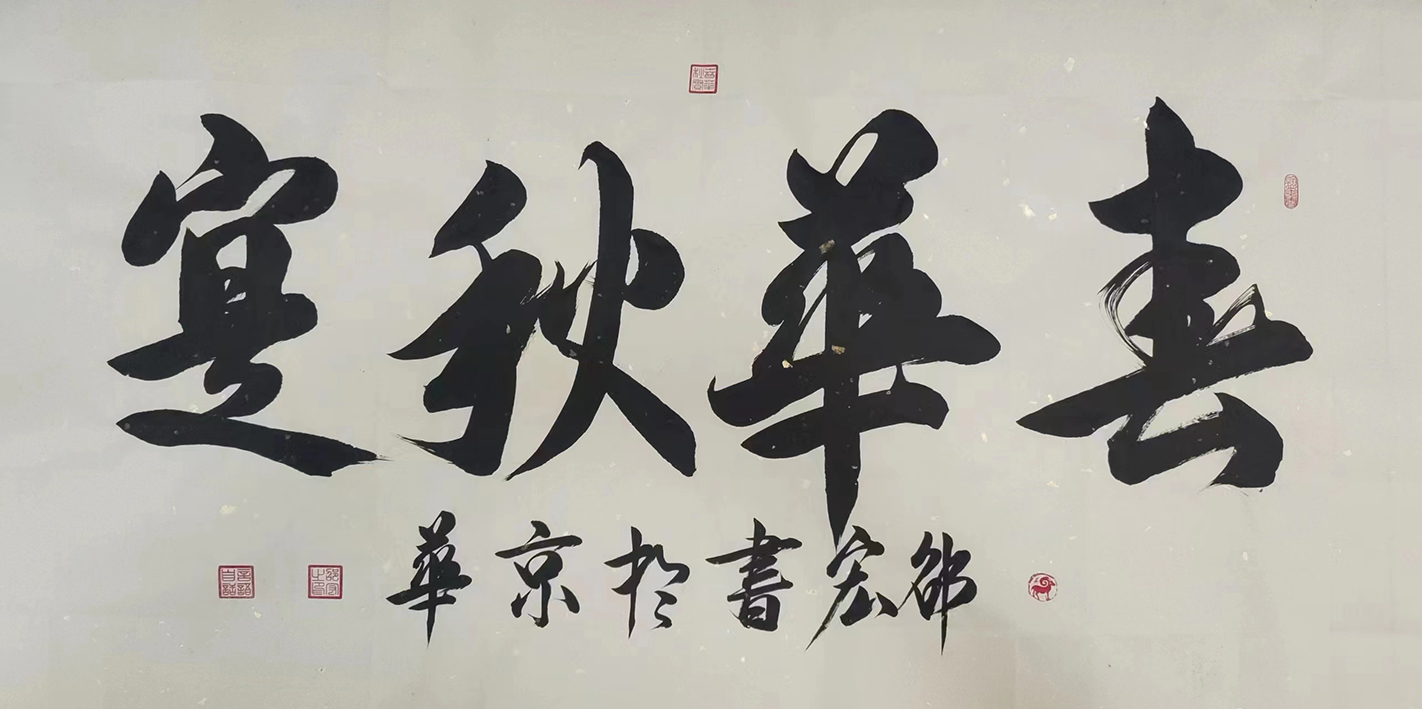 春華秋寔
邵宏書於京華